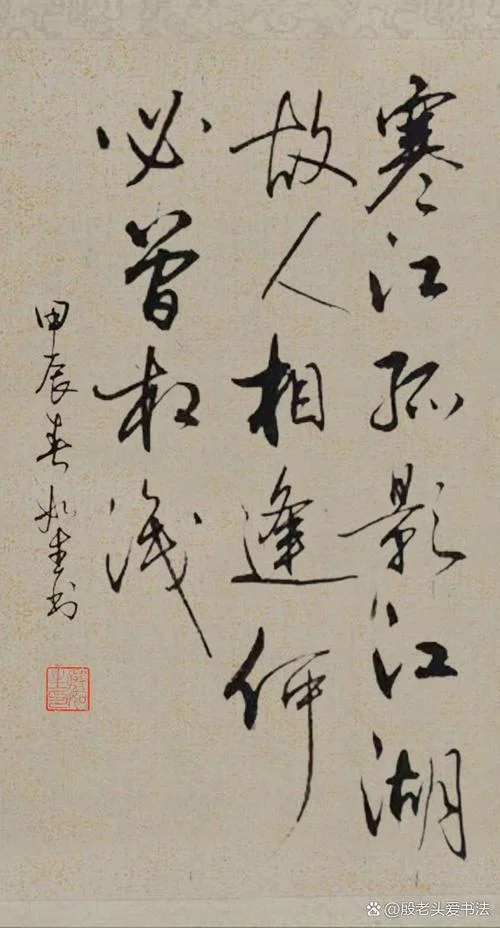 寒江孤影江湖
故人相逢何
必曾相識
甲辰春如生书
@殷老头爱书法